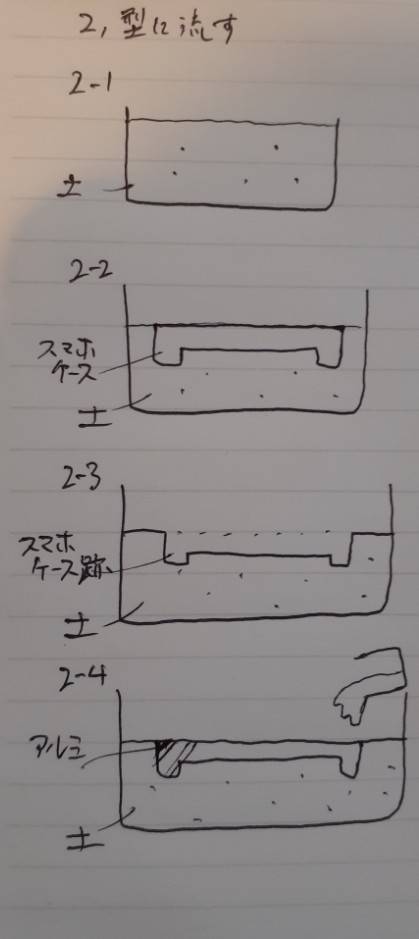 2, 型に流す
2-1
土
2-2
スマホ
ケース
土
2-3
スマホ
ケース跡
土
2-4
アルミ
土